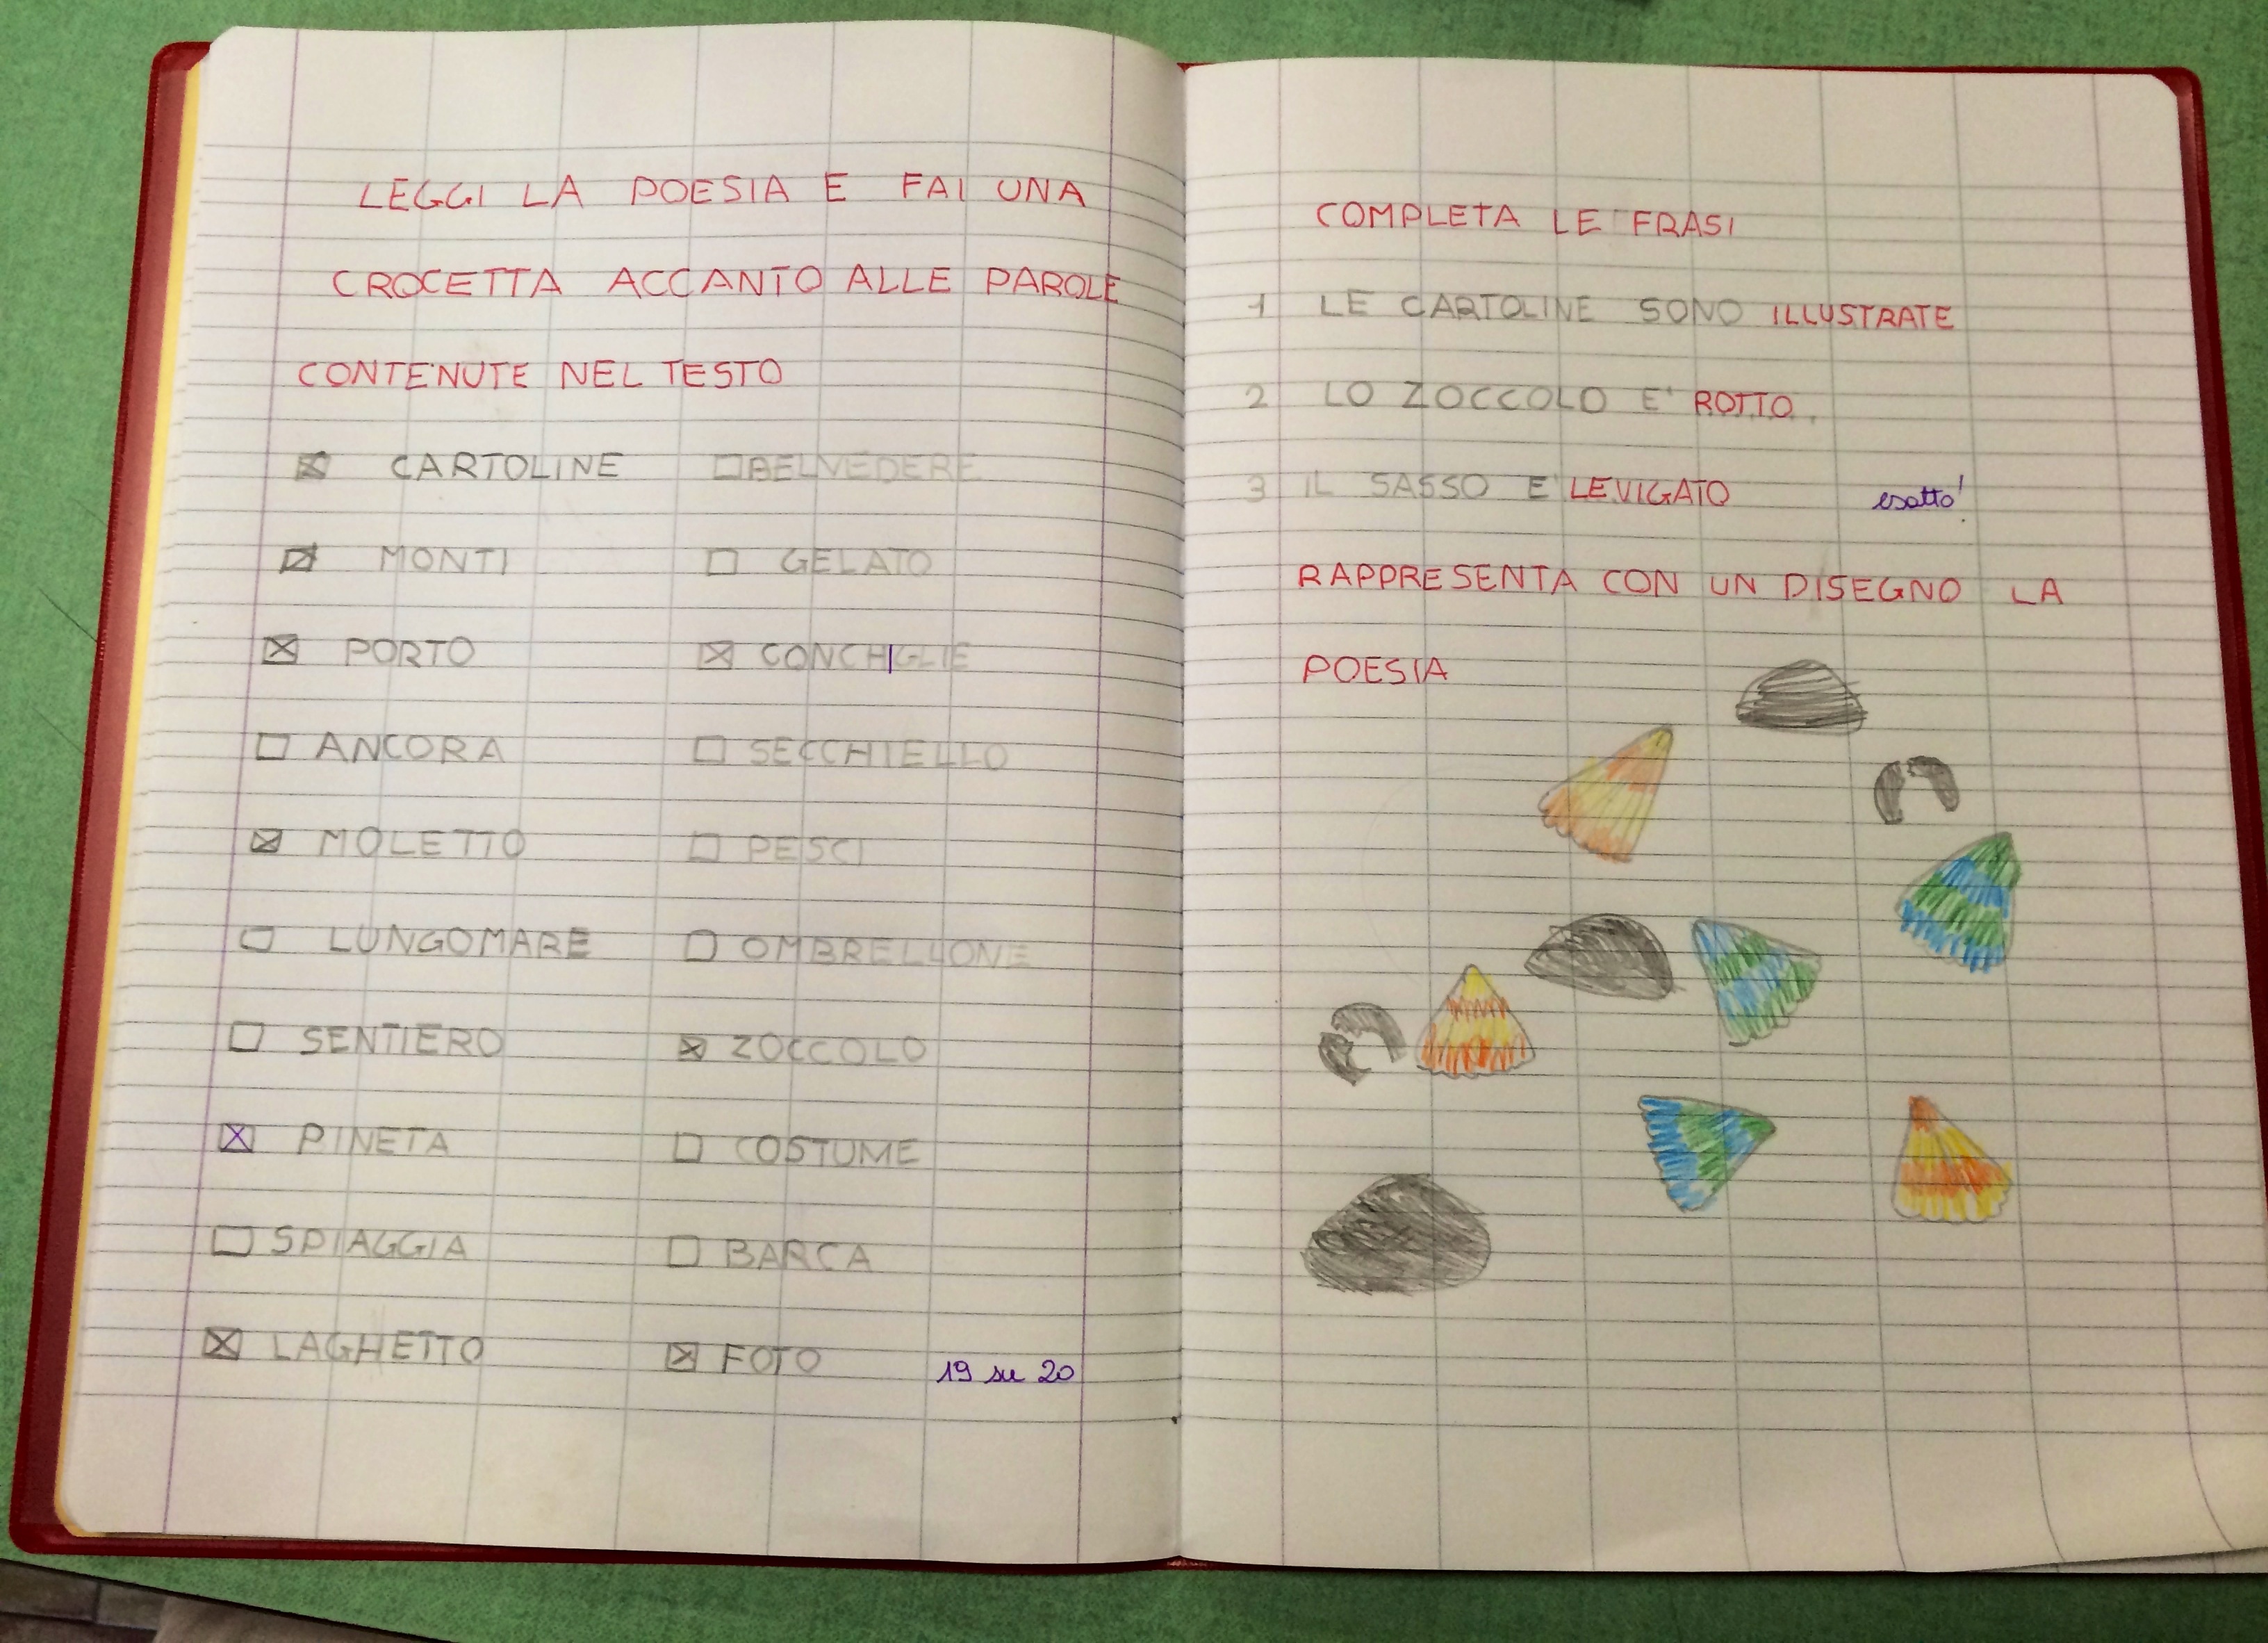 LEGGI LA POESIA E FAI UNA
CROCETTA ACCANTO ALLE PAROLE
CONTENUTE NEL TESTO
☒ CARTOLINE ☐ BELVEDERE
☒ MONTI ☐ GELATO
☒ PORTO ☒ CONCHIGLIE
☐ ANCORA ☐ SECCHIELLO
☒ MOLETTO ☐ PESCI
☐ LUNGOMARE ☐ OMBRELLONE
☐ SENTIERO ☒ ZOCCOLO
☒ PINETA ☐ COSTUME
☐ SPIAGGIA ☐ BARCA
☒ LAGHETTO ☒ FOTO 19 su 20
COMPLETA LE FRASI
1 LE CARTOLINE SONO ILLUSTRATE
2 LO ZOCCOLO E' ROTTO.
3 IL SASSO E' LEVIGATO esatto!
RAPPRESENTA CON UN DISEGNO LA
POESIA